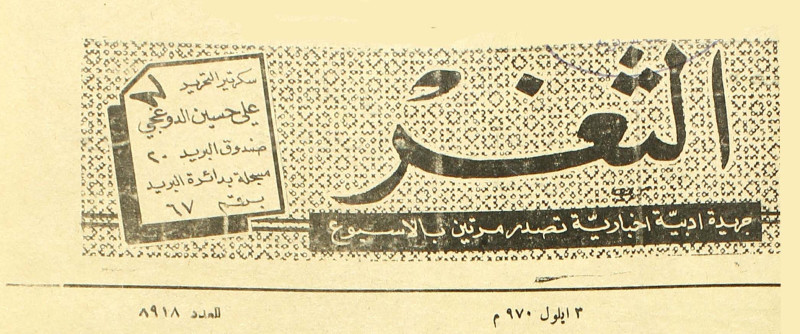 الثغر
جريدة ادبيّة اخباريّة تصدر مرتين بالاسبوع
سكرتير التحرير
علي حسين الدوغجي
صندوق البريد ٢٠
مسجلة بدائرة البريد
برقم ٦٧
٣ ايلول ٩٧٠ م
العدد ٨٩١٨